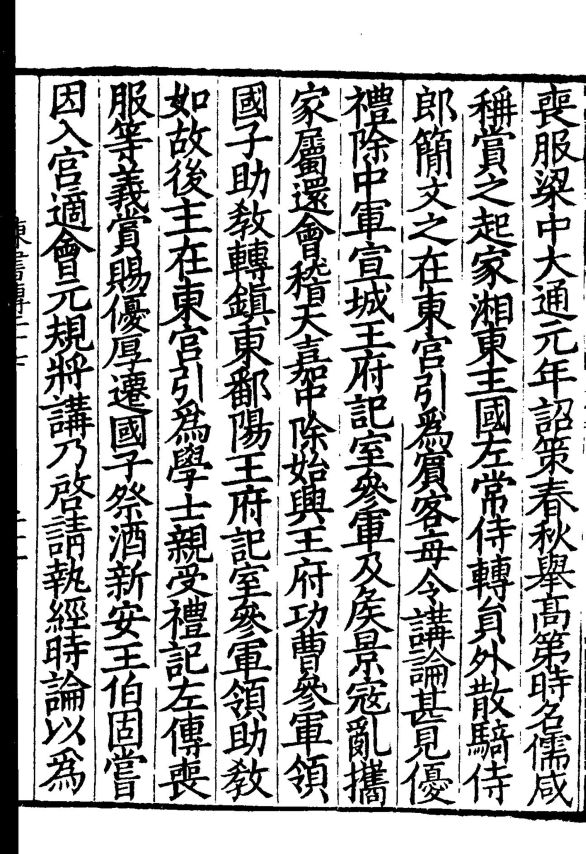 喪服梁中大通元年詔策春秋舉高第時名儒咸
稱賞之起家湘東王國左常侍轉負外散騎侍
郎簡文之在東宮引爲賓客每令講論甚見優
禮除中軍宣城王府記室參軍及侯景寇亂攜
家屬還會稽天嘉中除始興王府功曹參軍領
國子助敎轉鎮東鄱陽王府記室參軍領助敎
如故後主在東宮引爲學士親受禮記左傳喪
服等義賞賜優厚遷國子祭酒新安王伯固嘗
因入宮適會元規將講乃啓請執經時論以爲